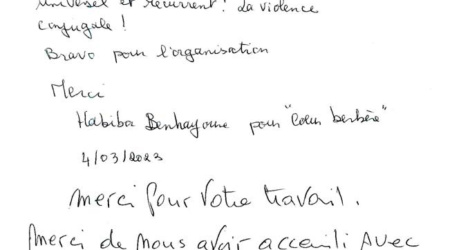 universel et récurrent : la violence
conjugale !
Bravo pour l'organisation
Merci
Habiba Benhayoune pour "Coeur berbère"
4/03/2023
merci pour votre travail.
Merci de nous avoir acceuili avec